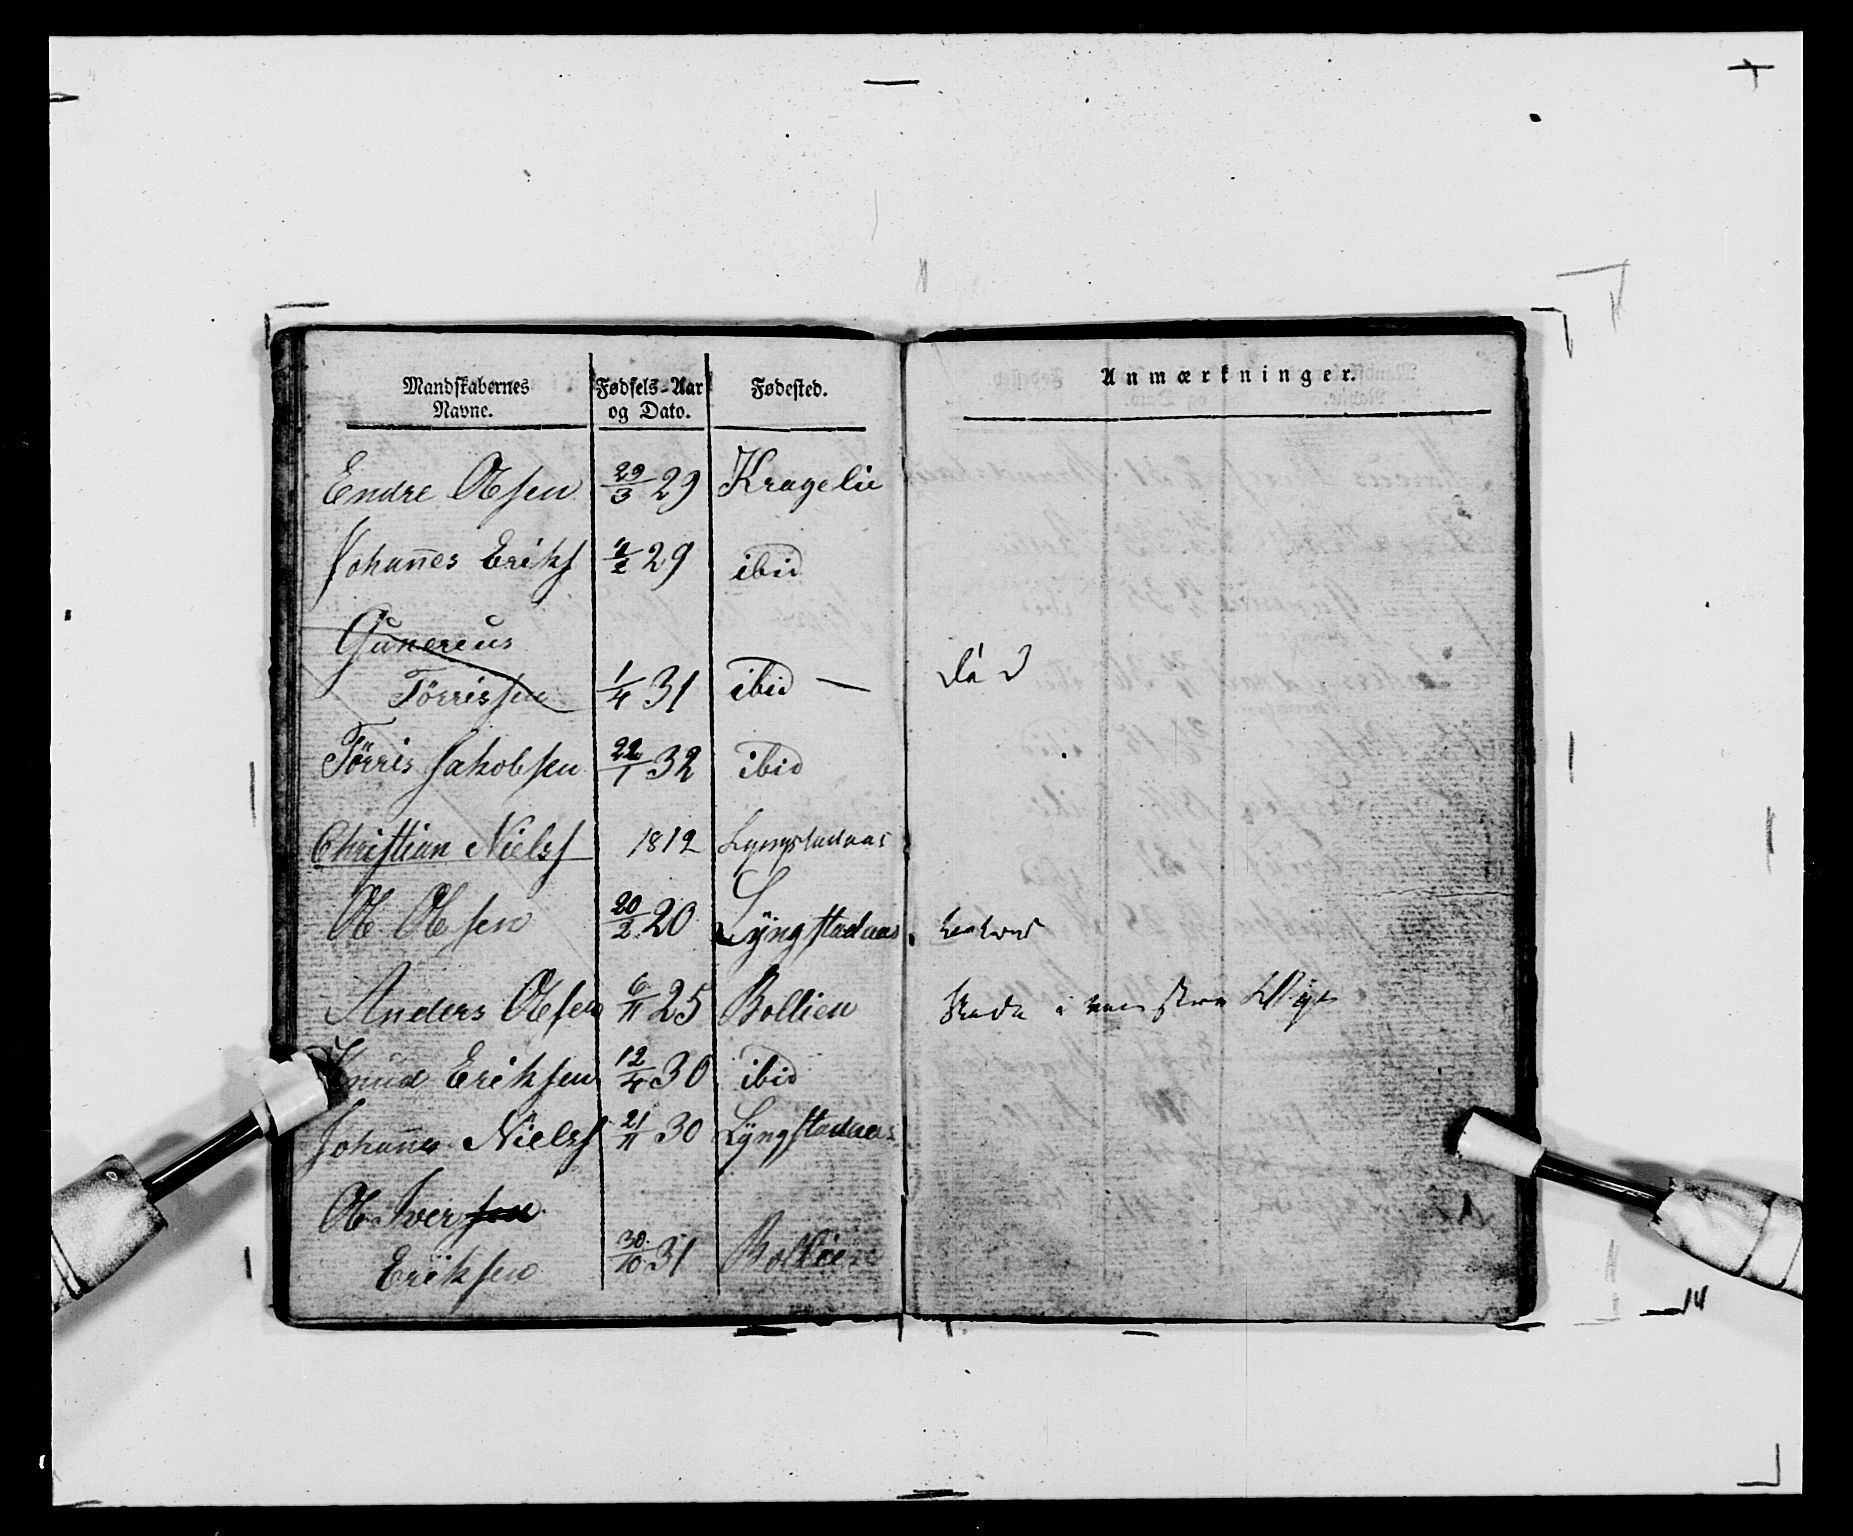 Mandskabernes Navne. Fødsels-Aar og Dato. Fødested. Anmærkninger.
Endre Olsen 29/3 29 Kragelie
Johan̄es Eriks 29 ibid
Gunereus
Tørrissen 1/4 31 ibid — Død
Tørris Jakobsen 22/1 32 ibid
Christian Niels 1812 Lyngstadaas
Ole Olsen 20/2 20 Lÿngstadaas
Anders Olsen 6/11 25 Bollien Skade i venstre Øye
Knud Eriksen 12/4 30 ibid
Johan̄es Niels 21/11 30 Lÿngstadaas
Ole Iversen
Eriksen 30/10 31 Bollien
14